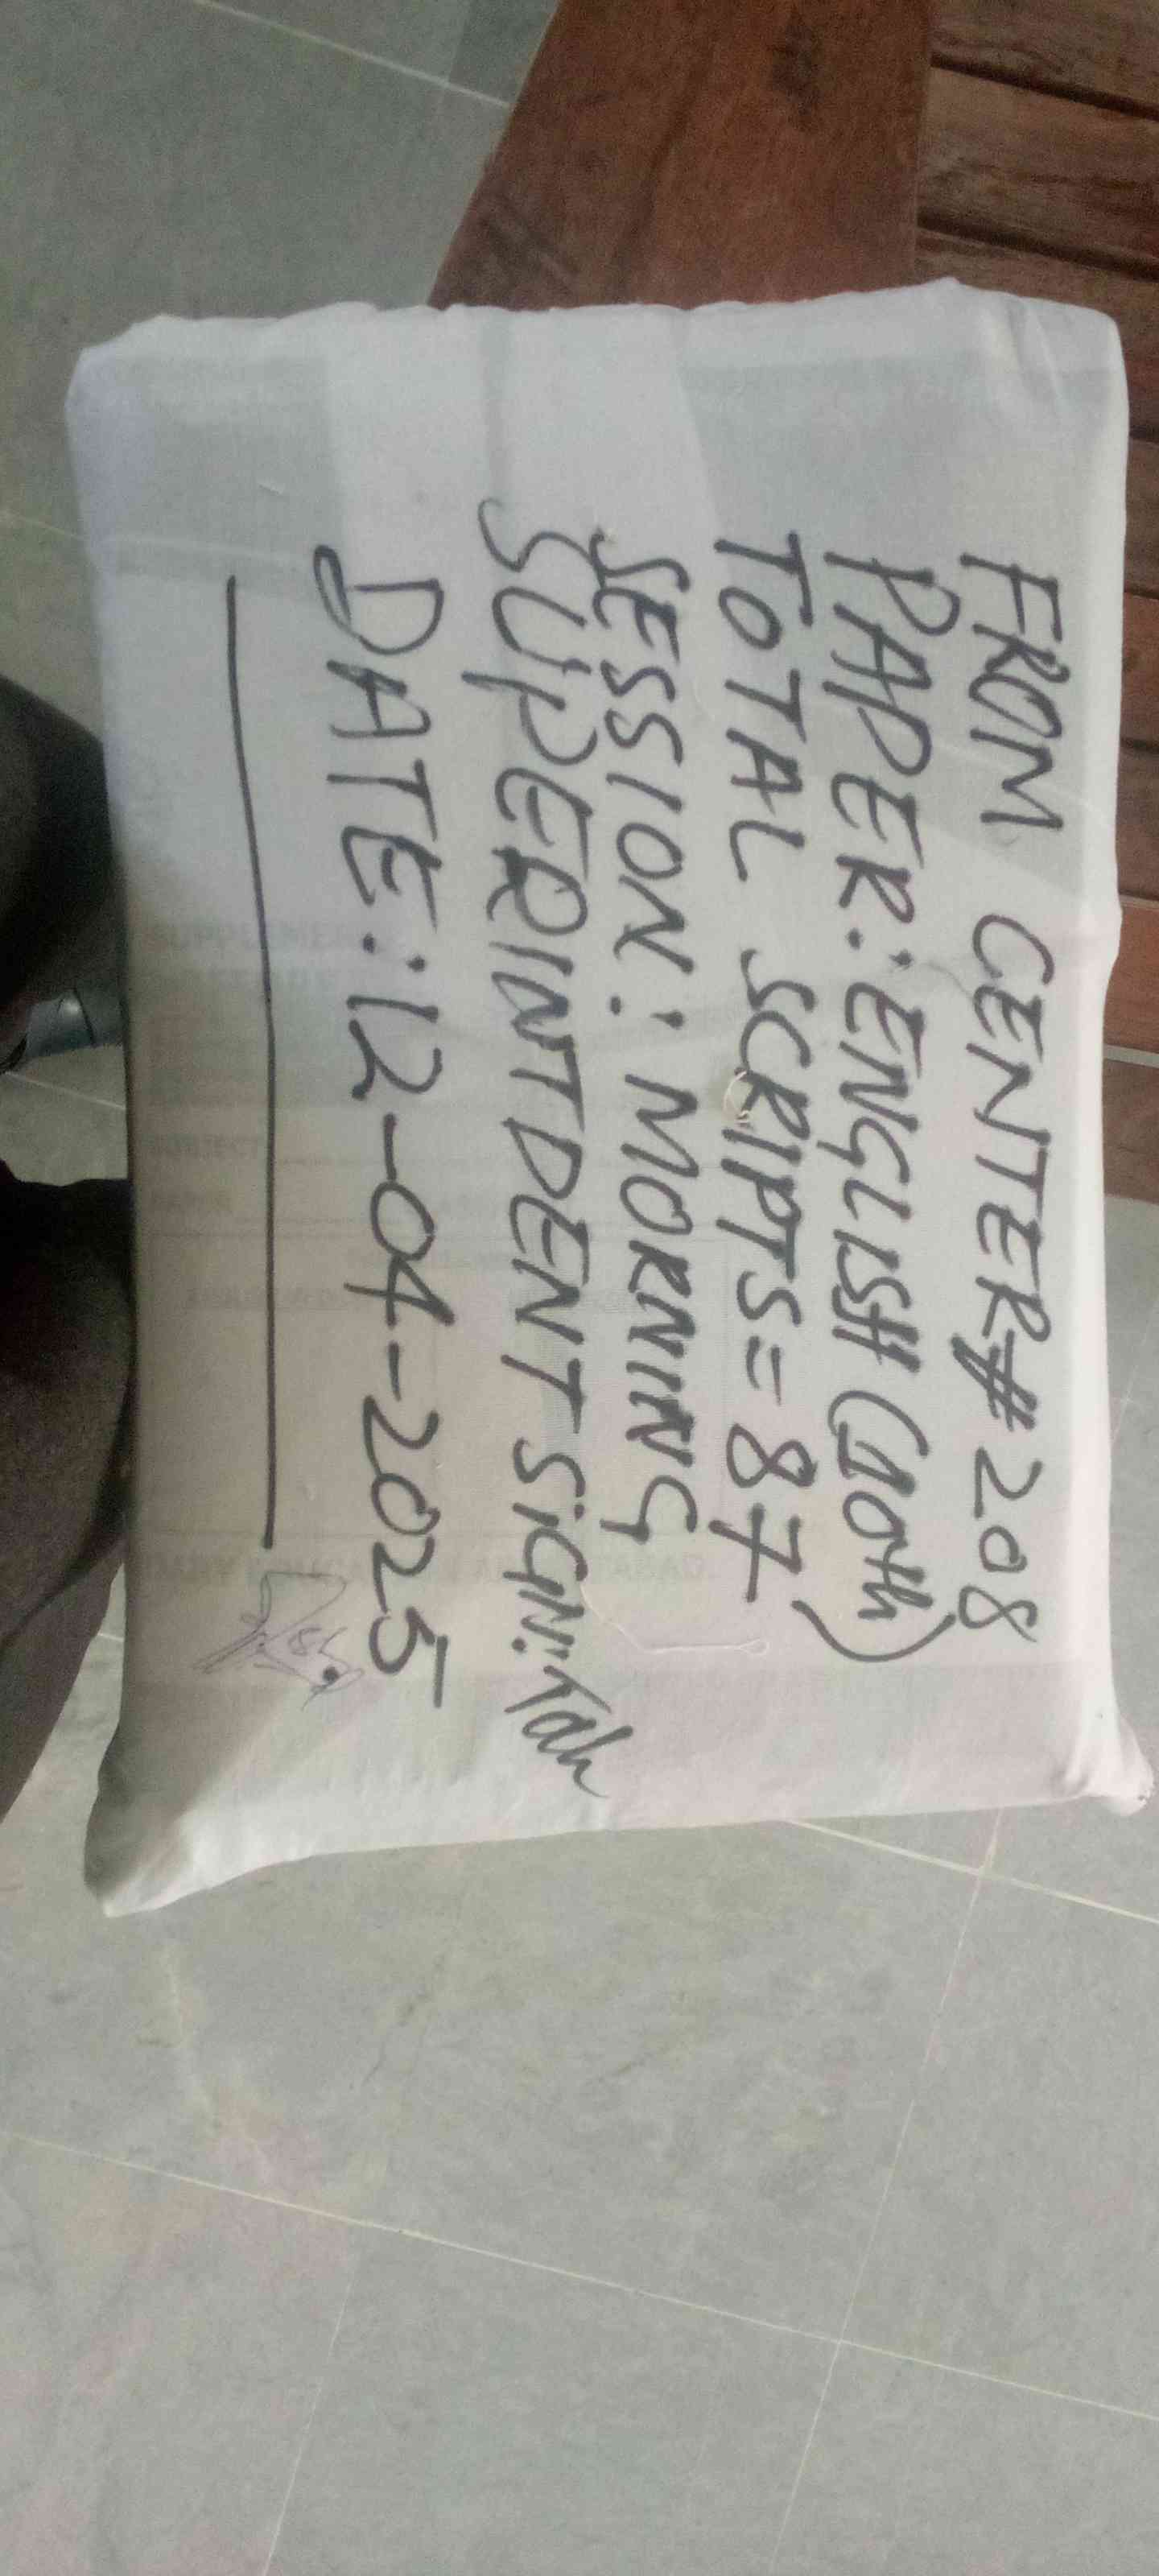 FROM CENTER# 208
PAPER: ENGLISH (10th)
TOTAL SCRIPTS = 87
SESSION: MORNING
SUPERINTDENT SIGN:
DATE: 12-04-2025